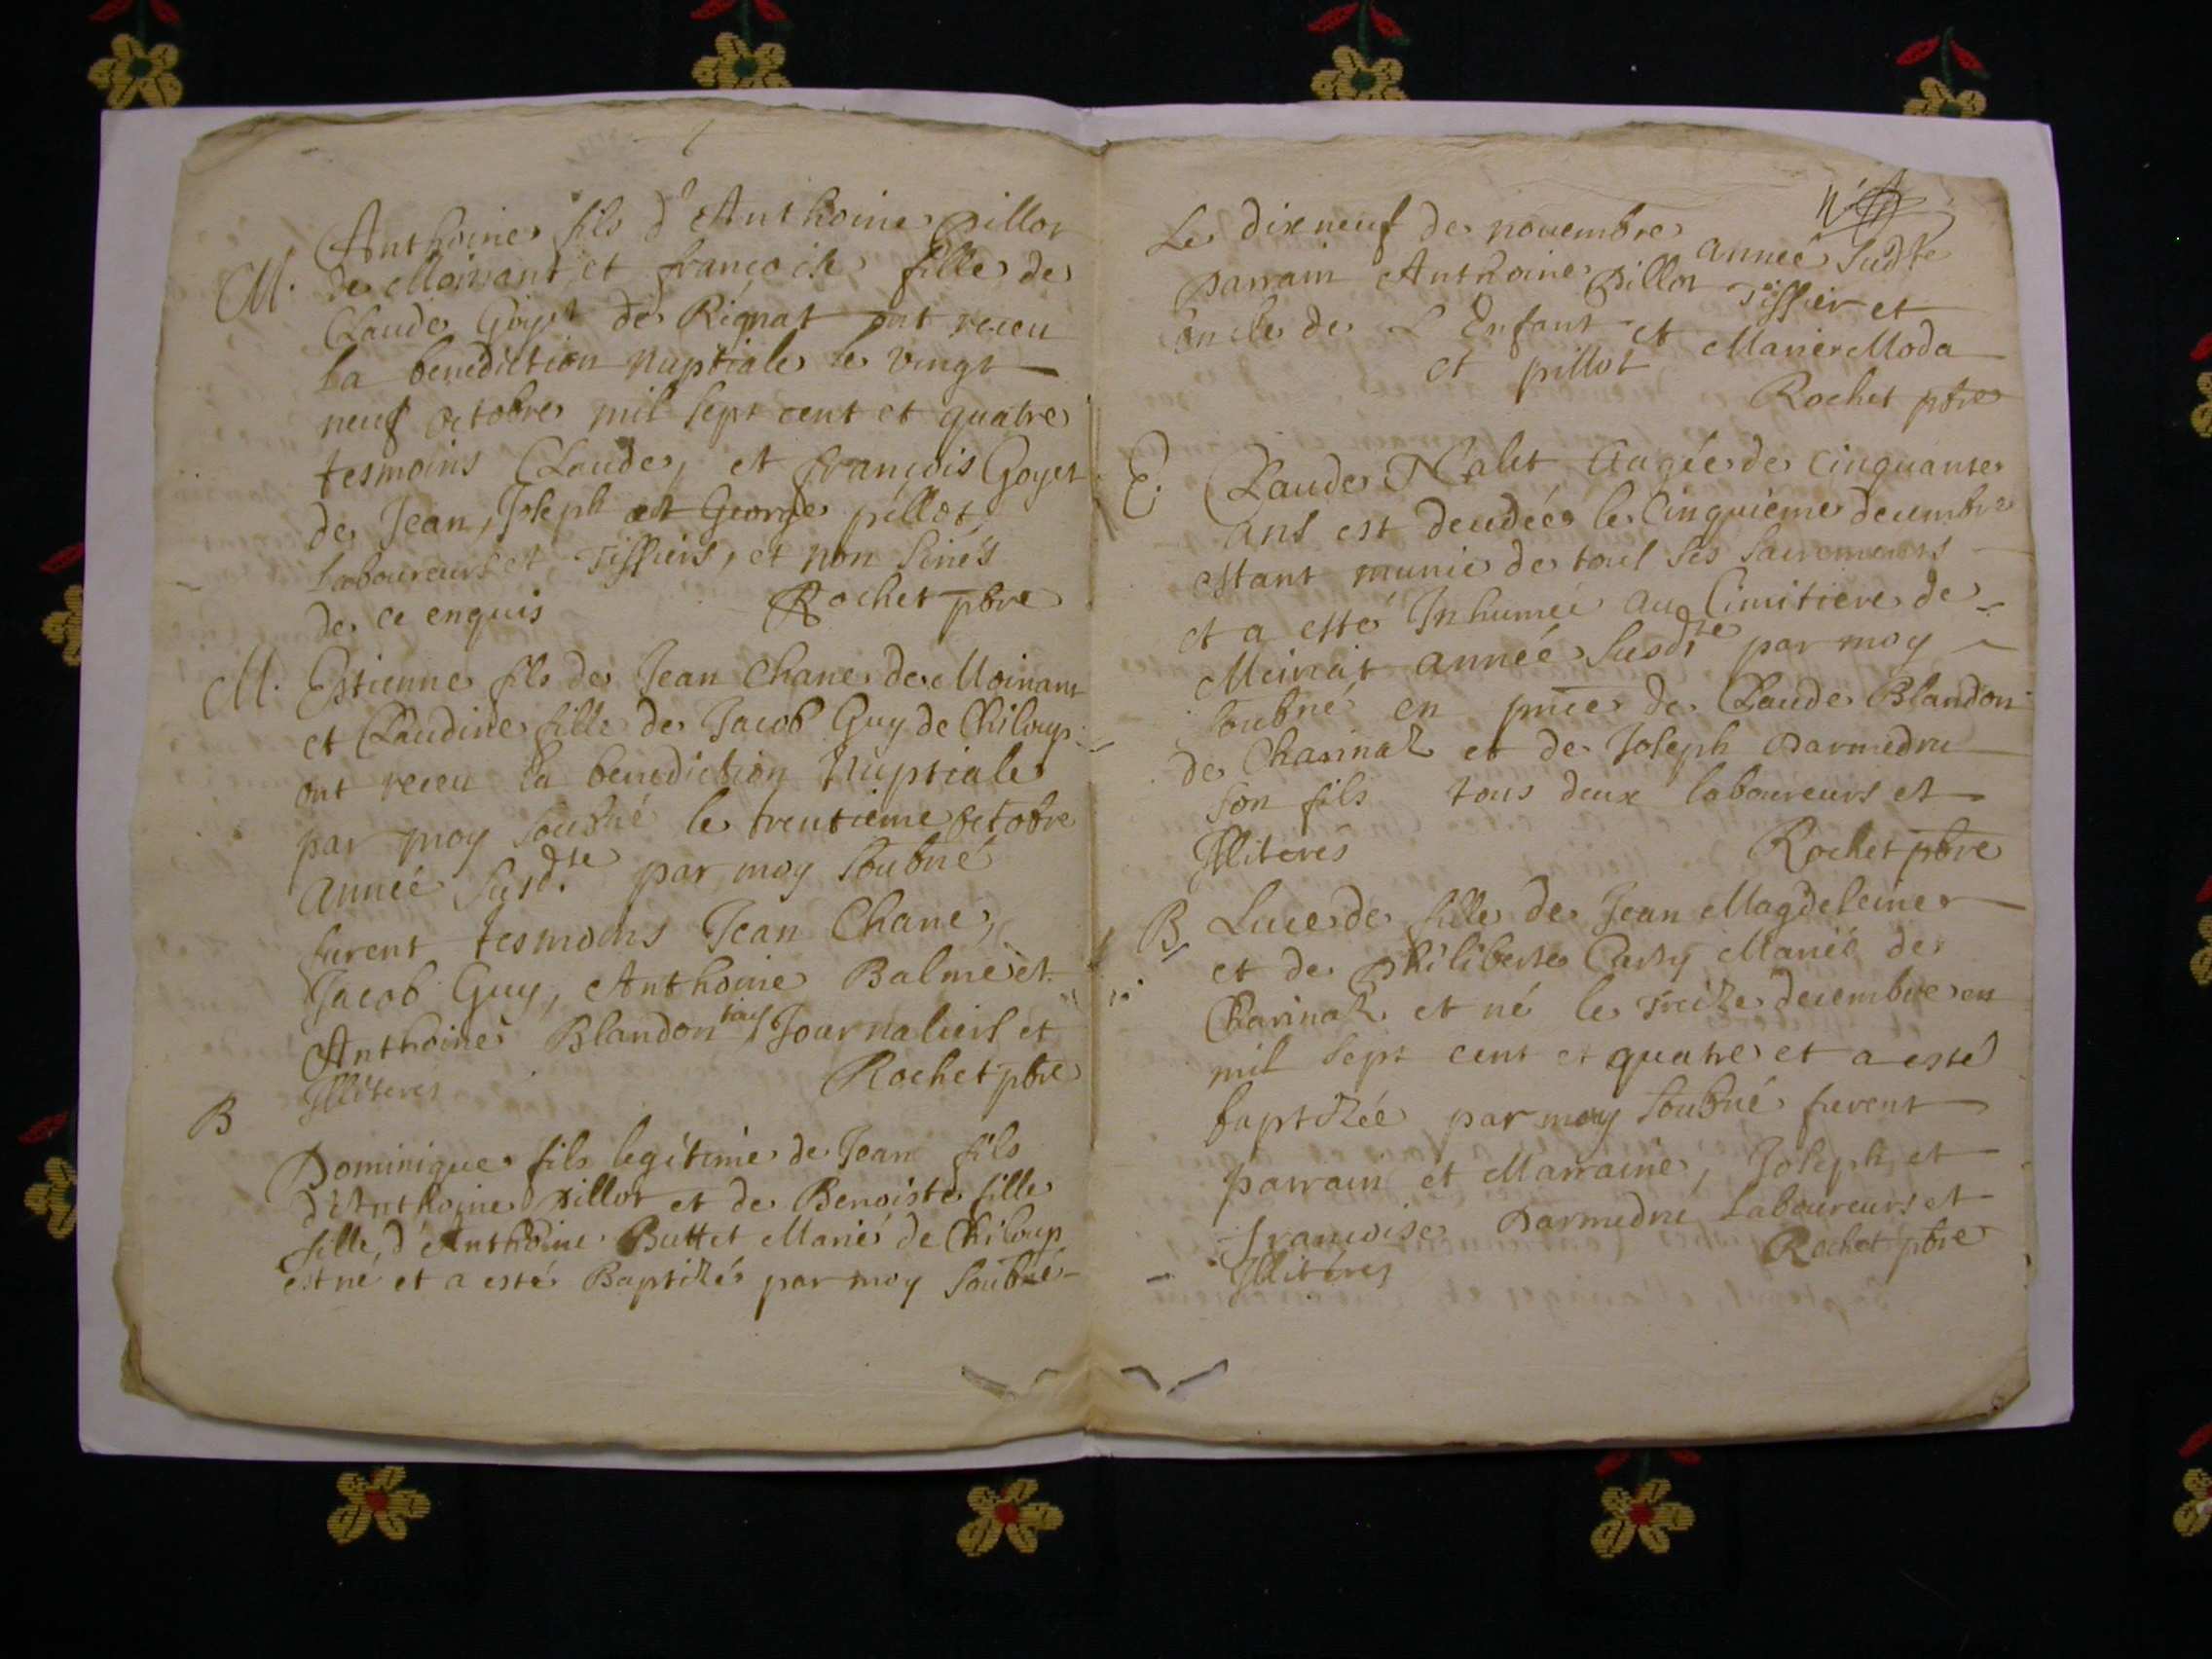 Anthoine fils d'Anthoine pillot
M. de Moinant et francoise fille de
Claude Goyet de Rignat ont receu
la benediction nuptiale le vingt
neuf octobre mil sept cent et quatre
tesmoins Claude, et françois Goyet
de Jean, Joseph et George pillot,
laboureurs et Tissiers, et non sinés
de ce enquis Rochet pbre
M. Estienne fils de Jean Chane de Moinant
et Claudine fille de Jacob Guy de Chiloup
ont receu la benediction Nuptiale
par moy soubné le trentieme octobre
année susdte par moy soubné
furent tesmoins Jean Chane,
Jacob Guy, Anthoine Balme et
Anthoine Blandon tous Journaliers et
Illiteres Rochet pbre
B
Dominique fils legitime de Jean fils
d'Anthoine pillot et de Benoiste fille
fille, d'Anthoine Buttet Marié de Chiloup
est né et a esté Baptizé par moy soubné
Le dixneuf de novembre année susdte
parrain Anthoine pillot Tissier et
oncle de L'Enfant et Marie Moda
et pillot
Rochet pbre
E. Claude Nalet aagée de cinquante
ans est decedée le cinquieme decembre
estant munie de tous ses sacrements
et a esté Inhumée au Cimitiere de
année susdte par moy
soubné en pnce de Claude Blandon
de Charinaz et de Joseph Darmedru
son fils tous deux laboureurs et
Illiteres Rochet pbre
B, fille de Jean Magdeleine
et de philiberte Marié de
Charinaz et né le Treize decembre en
mil sept cent et quatre et a esté
baptizée par moy soubné furent
parrain et Marraine, Joseph et
francoise Darmedru laboureurs et
Illiteres Rochet pbre